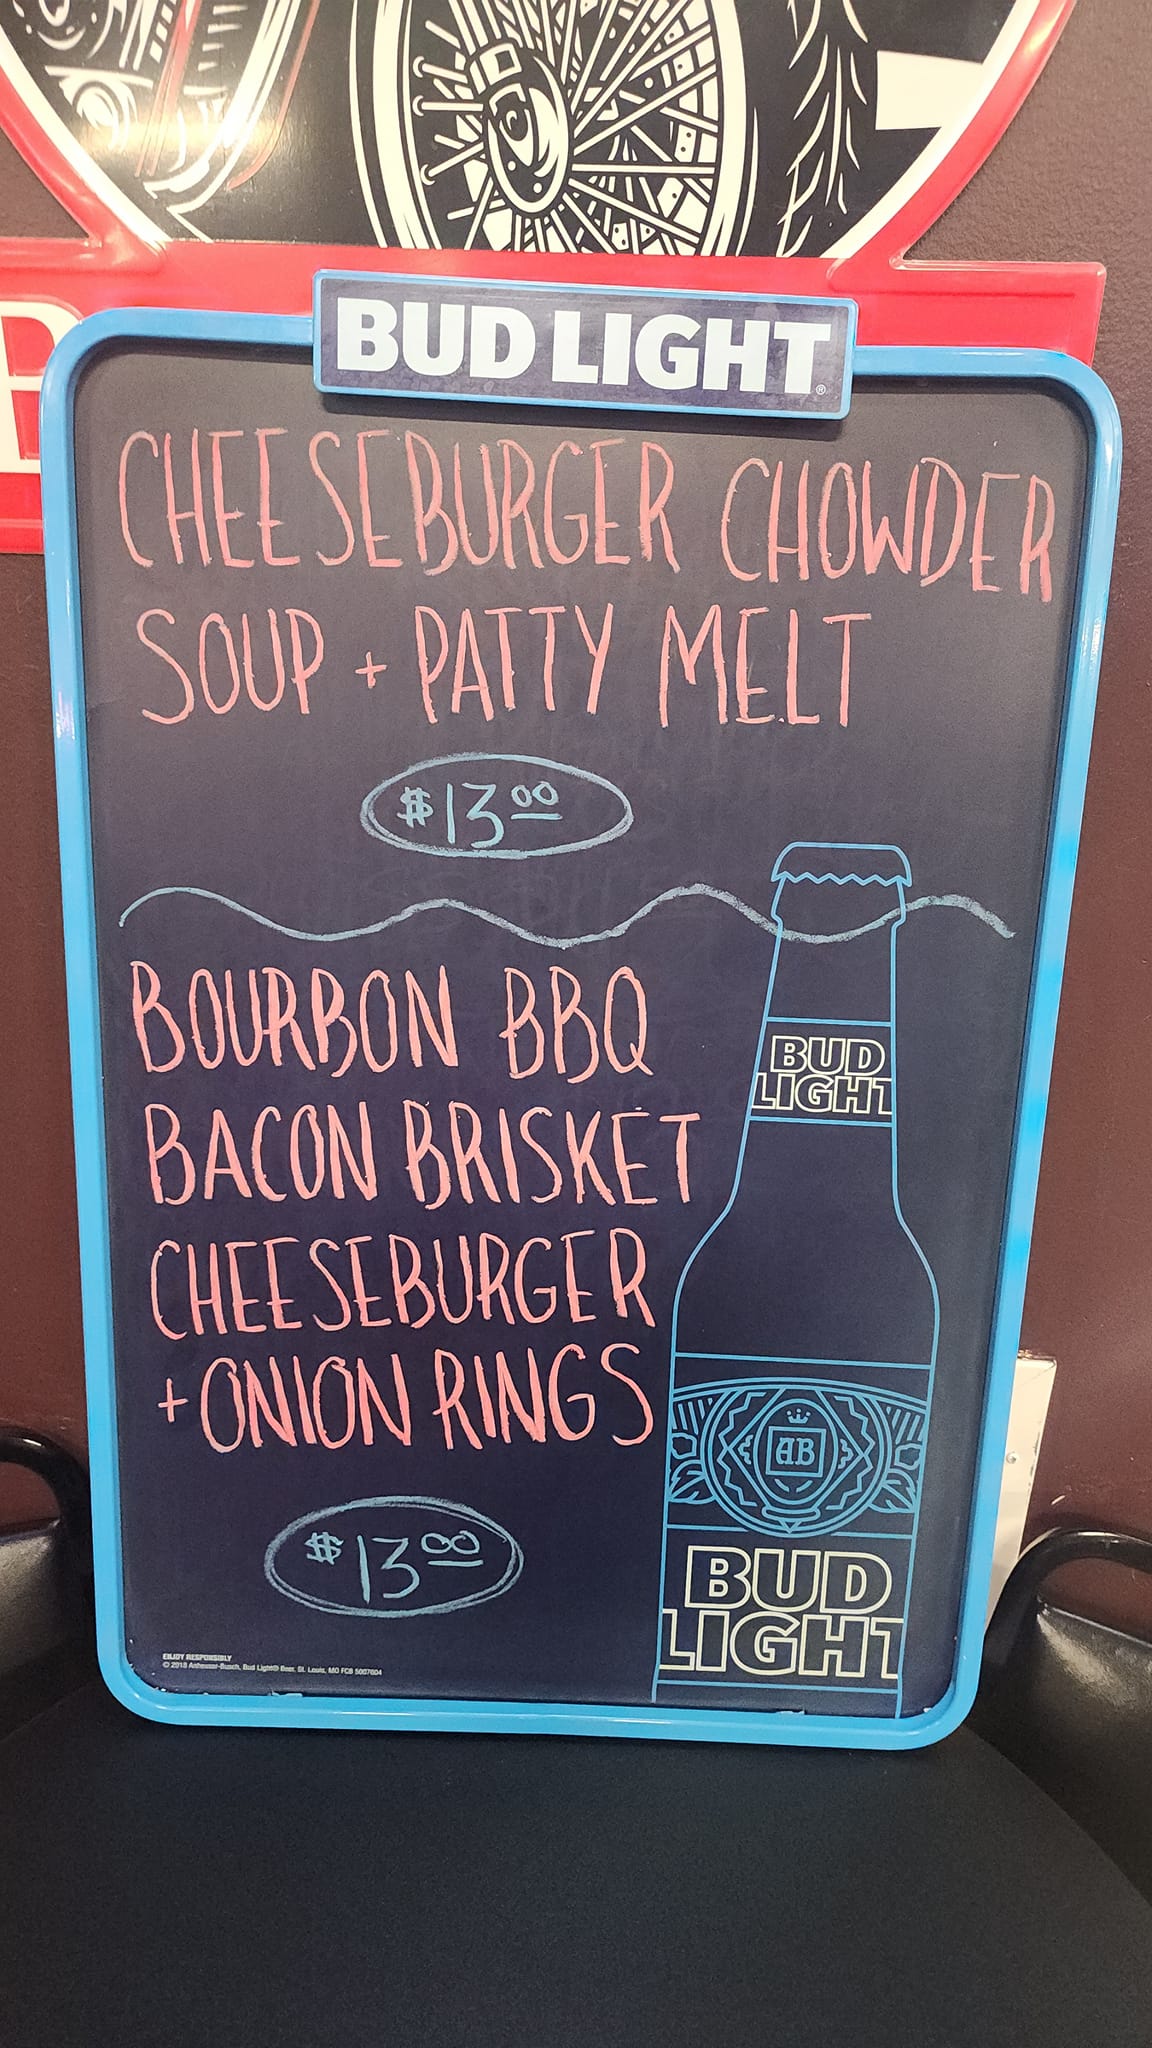 BUD LIGHT
CHEESEBURGER CHOWDER
SOUP + PATTY MELT
$13.00
BOURBON BBQ
BACON BRISKET
CHEESEBURGER
+ ONION RINGS
$13.00
BUD
LIGHT
AB
BUD
LIGHT
ENJOY RESPONSIBLY
© 2018 Anheuser-Busch, Bud Light® Beer, St. Louis, MO FCB 5007604